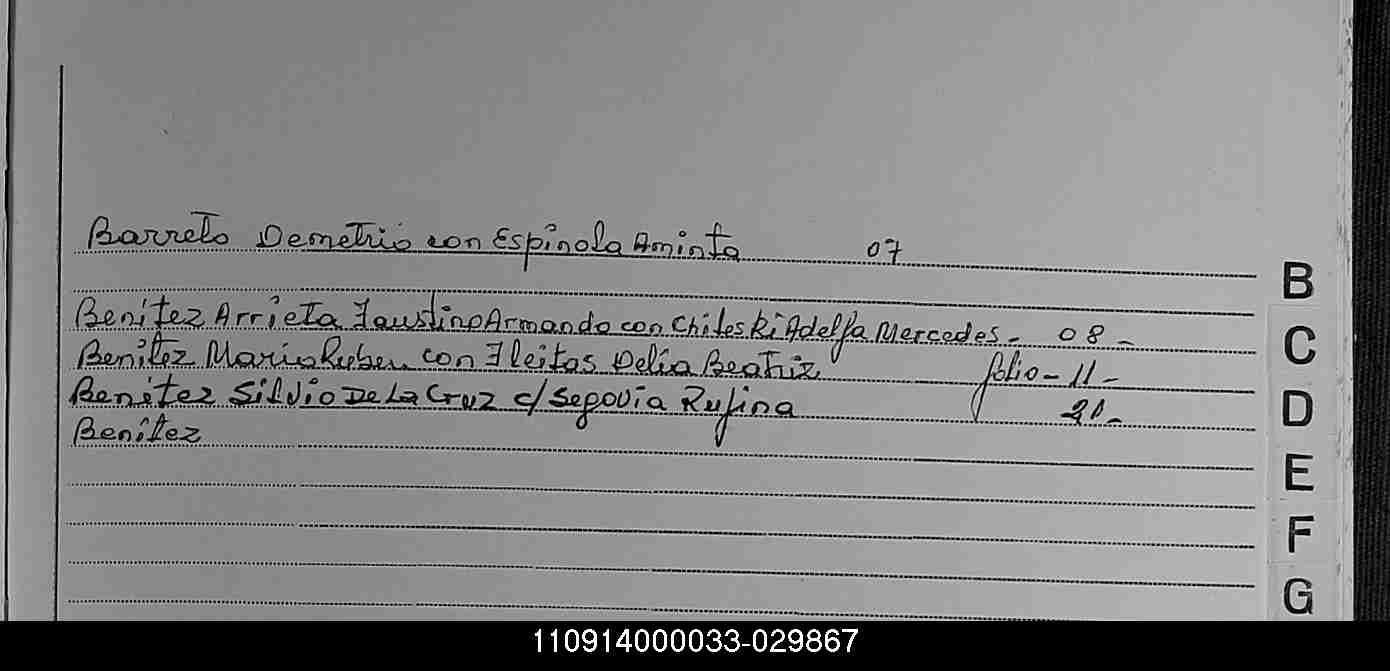 Barreto Demetrio con Espinola Aminta 07
B
Benítez Arrieta Faustino Armando con Chileski Adelfa Mercedes - 08 -
C
Benítez Mario Ruben con Fleitas Delia Beatriz folio - 11 -
Benítez Silvio De La Cruz c/ Segovia Rufina 21 -
D
Benítez
E
F
G
110914000033-029867